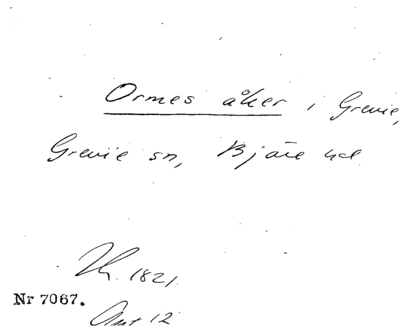 Ormes åker i Grevie,
Grevie sn, Bjäre hd.
1821.
Nr 7067.
12